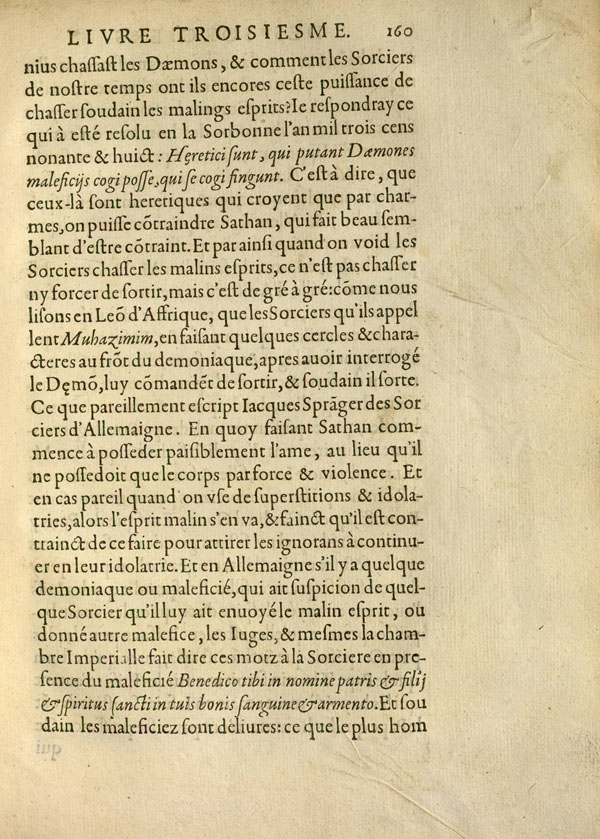 LIVRE TROISIESME. 160
nius chaſſaſt les Dæmons, & comment les Sorciers
de noſtre temps ont ils encores ceſte puiſſance de
chaſſer ſoudain les malings eſprits? Ie reſpondray ce
qui à eſté reſolu en la Sorbonne l'an mil trois cens
nonante & huict : Hęretici ſunt, qui putant Dæmones
maleficijs cogi poſſe, qui ſe cogi fingunt. C'eſt à dire, que
ceux-là ſont heretiques qui croyent que par char-
mes, on puiſſe cõtraindre Sathan, qui fait beau ſem-
blant d'eſtre cõtraint. Et par ainſi quand on void les
Sorciers chaſſer les malins eſprits, ce n'eſt pas chaſſer
ny forcer de ſortir, mais c'eſt de gré à gré: cõme nous
liſons en Leõ d'Affrique, que les Sorciers qu'ils appel
lent Muhazimim, en faiſant quelques cercles & chara-
cteres au frõt du demoniaque, apres auoir interrogé
le Dęmõ, luy cõmandẽt de ſortir, & ſoudain il ſorte.
Ce que pareillement eſcript Iacques Sprãger des Sor
ciers d'Allemaigne. En quoy faiſant Sathan com-
mence à poſſeder paiſiblement l'ame, au lieu qu'il
ne poſſedoit que le corps par force & violence. Et
en cas pareil quand on vſe de ſuperſtitions & idola-
tries, alors l'eſprit malin s'en va, & fainct qu'il eſt con-
trainct de ce faire pour attirer les ignorans à continu-
er en leur idolatrie. Et en Allemaigne s'il y a quelque
demoniaque ou maleficié, qui ait ſuſpicion de quel-
que Sorcier qu'il luy ait enuoyé le malin eſprit, ou
donné autre malefice, les Iuges, & meſmes la cham-
bre Imperialle fait dire ces motz à la Sorciere en pre-
ſence du maleficié Benedico tibi in nomine patris & filij
& ſpiritus ſancti in tuis bonis ſanguine & armento. Et ſou
dain les maleficiez ſont deliures: ce que le plus hom